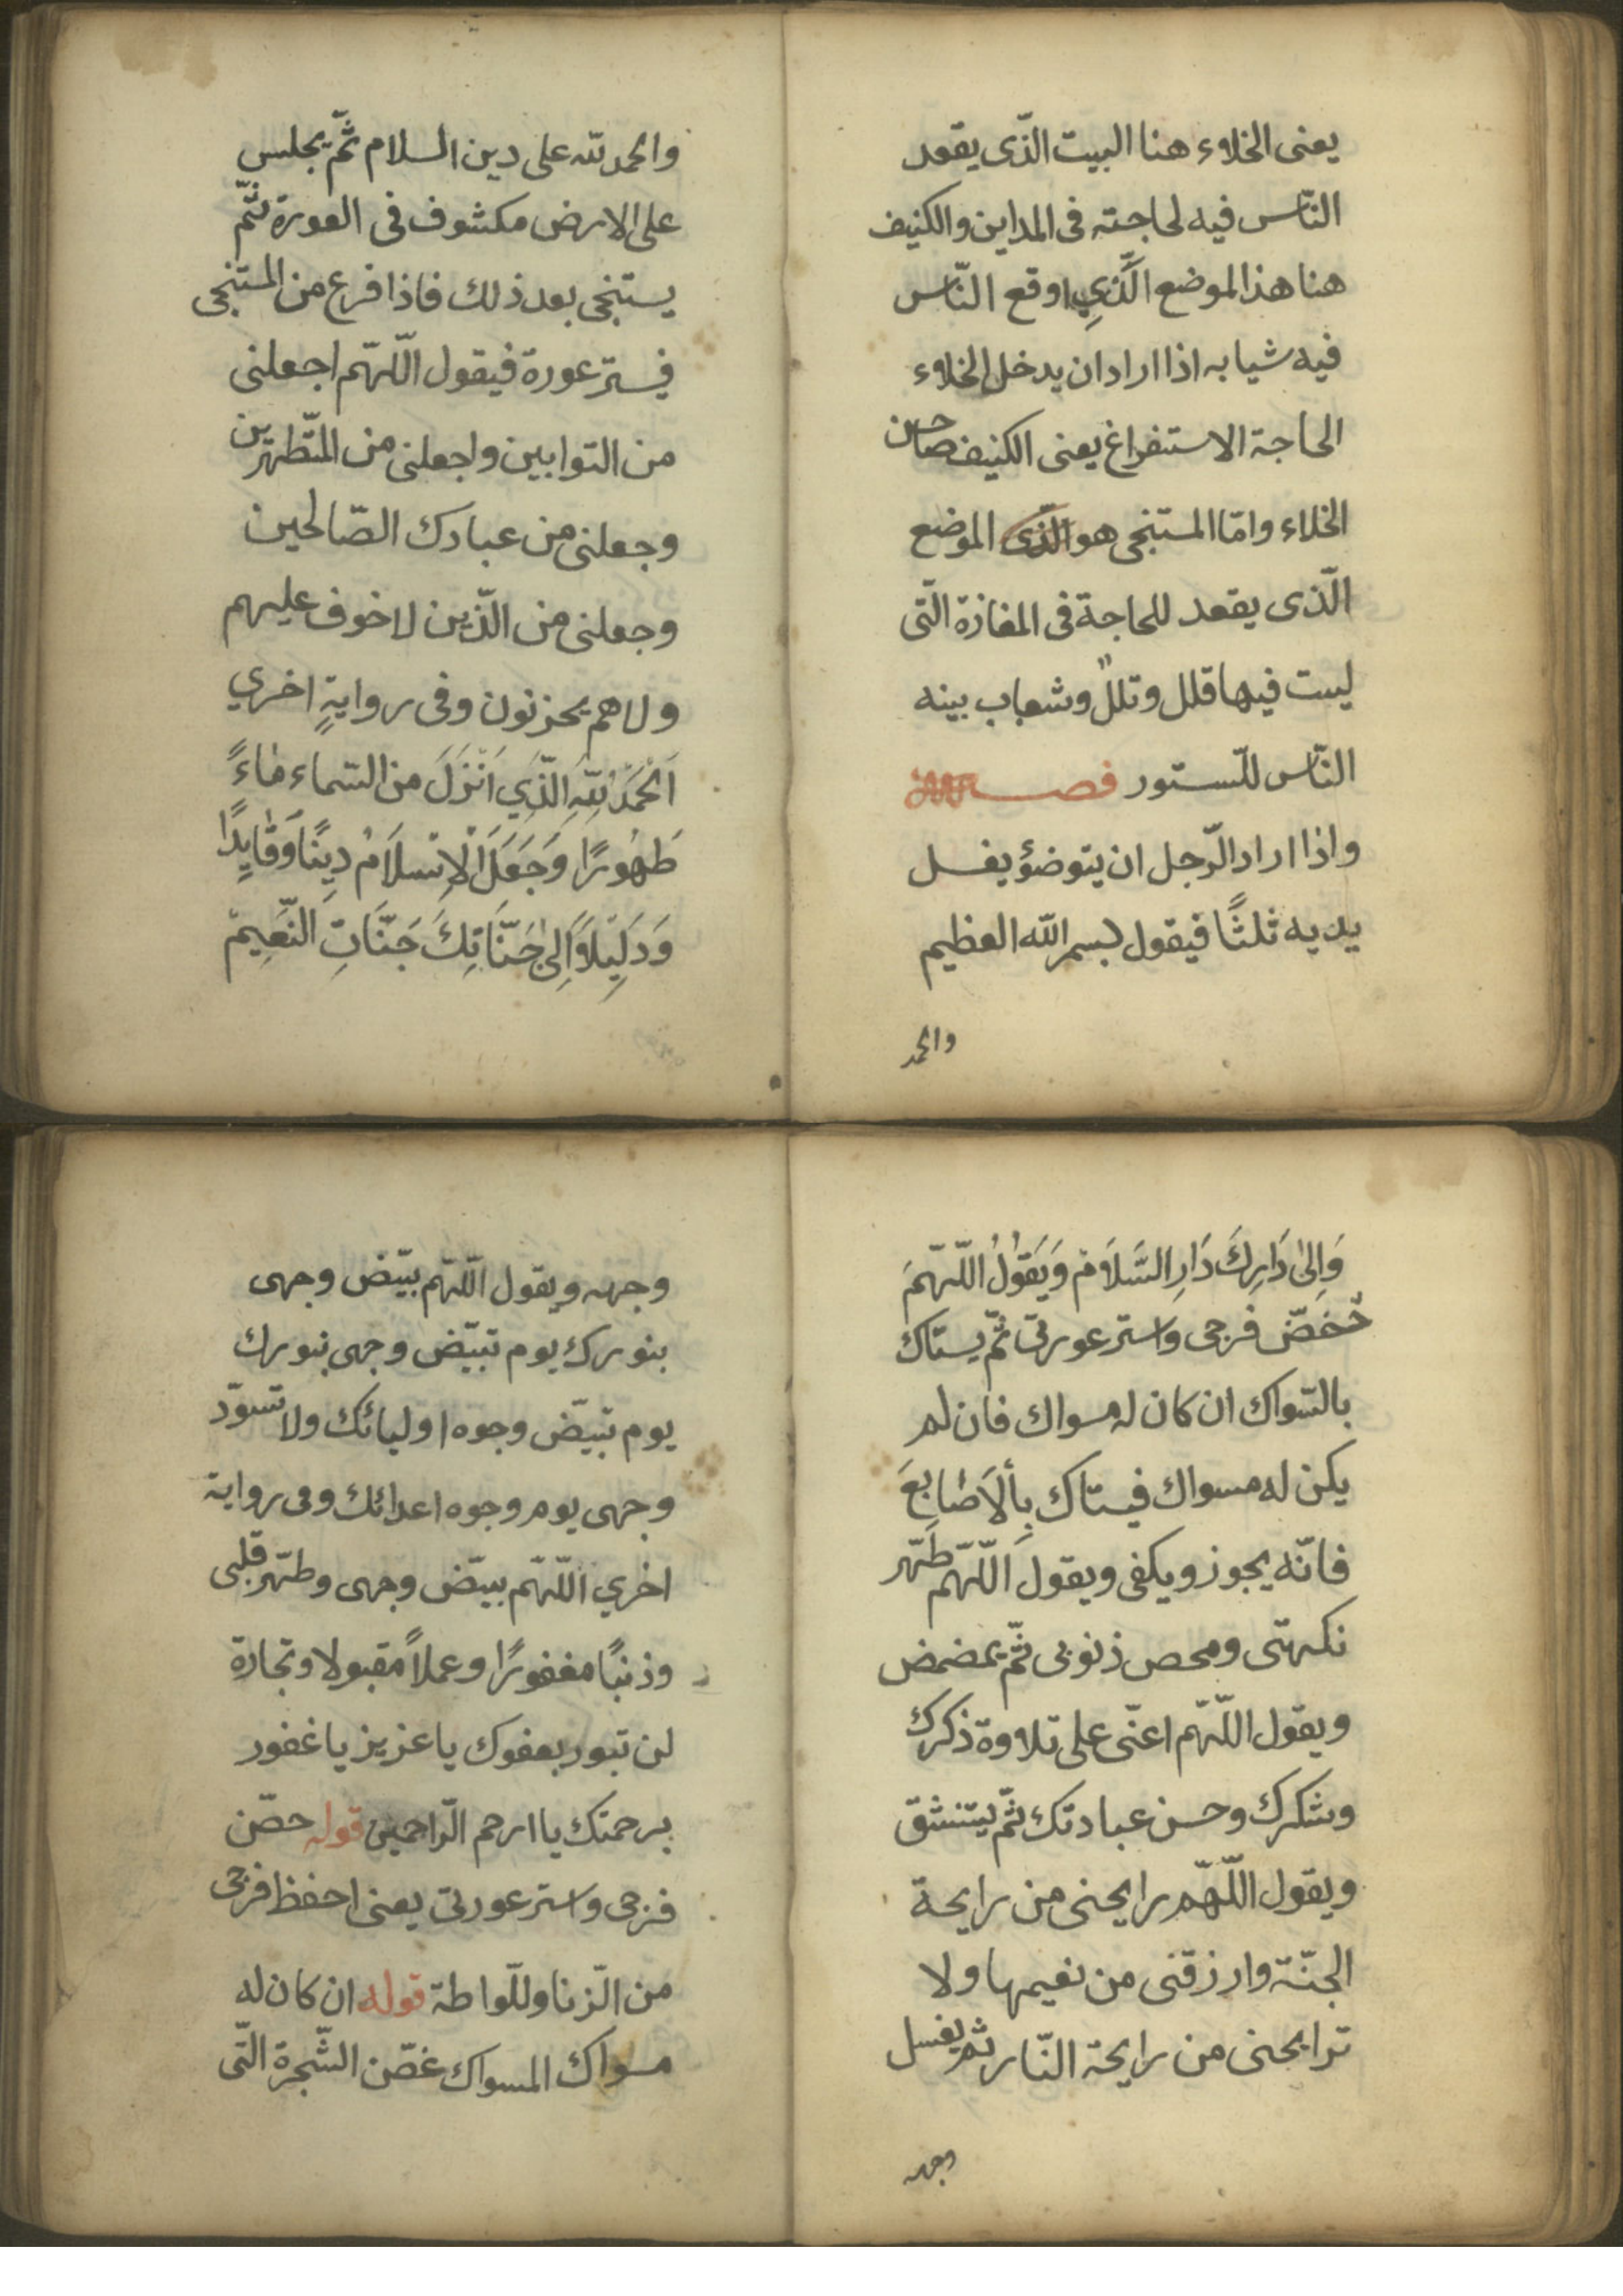 يعنى الخلاء هنا البيت الّذى يقعد
النّاس فيه لحاجته فى المداين والكنيف
هنا هذا الموضع الَّذِي اوقع النّاس
فيه شيا به اذا اراد ان يدخل الخلاء
الحاجة الاستفراغ يعنى الكنيف صاحن
الخلاء وامّا المستنجى هو الّذى الموضع
الّذى يقعد للحاجة فى المفازة الّتى
ليست فيها قلل وتلل وشعاب بينه
النّاس للّستور فصـــل
واذا اراد الرّجل ان يتوضؤ يغسل
يديه ثلثًا فيقول بسم الله العظيم
والحمد
والحمد لله على دين السلام ثمّ يجلس
على الارض مكشوف فى العورة ثمّ
يستنجى بعد ذلك فاذا فرع من المستنجى
فيستر عورة فيقول اللّهمّ اجعلنى
من التوابين واجعلنى من المتّطهرين
وجعلنى من عبادك الصّالحين
وجعلنى من الّذين لا خوف عليهم
ولا هم يحزنون وفى روايةٍ اخري
اَلْحَمْدُ لِلّهِ الَّذِي اَنْزَلَ من السّماء مَاءً
طَهُورًا وَجَعَلَ الْاِسْلَامْ دِينًا وَقَايِدًا
وَدَلِيْلاً اِلىٰ جَنَّاتِكَ جَنَّاتِ النَّعِيمْ
وَاِلىٰ دَارِكَ دَارِ السَّلَامْ وَيَقُوْلُ اللّهمَّ
حُصّن فرجى واستر عورتى ثمّ يستاك
بالسّواك ان كان له مسواك فان لم
يكن له مسواك فيستاك بِألاَصَابِعَ
فانّه يجوز ويكفى ويقول اللّهمّ طَهّر
نكهتى ومحص ذنوبى ثمّ يمضمض
ويقول اللّهمّ اعنّى على تلاوة ذكرك
وشكرك وحسن عبادتك ثمّ ليتنشق
ويقول اللّهمّ رايحنى من رايحة
الجنّة وارزقنى من نعيمها ولا
ترايحنى من رايحة النّار ثم يغسل
وجهه
وجهه ويقول اللّهمّ بيّض وجهى
بنورك يوم تبيّض وجهى بنورك
يوم تبيّض وجوه اوليائك ولا تسوّد
وجهى يوم وجوه اعدائك وفى رواية
اخري اللّهمّ بيّض وجهى وطهّر قلبى
وذنبًا مغفورًا وعملاً مقبولا وتجارة
لن تبور بعفوك يا عزيز يا غفور
برحمتك يا ارحم الرّاحمين قوله حصّن
فرجى واستر عورتى يعنى احفظ فرجى
من الّزنا وللّواطة قوله ان كان له
مسواك المسواك غصّن الشّجرة الّتى